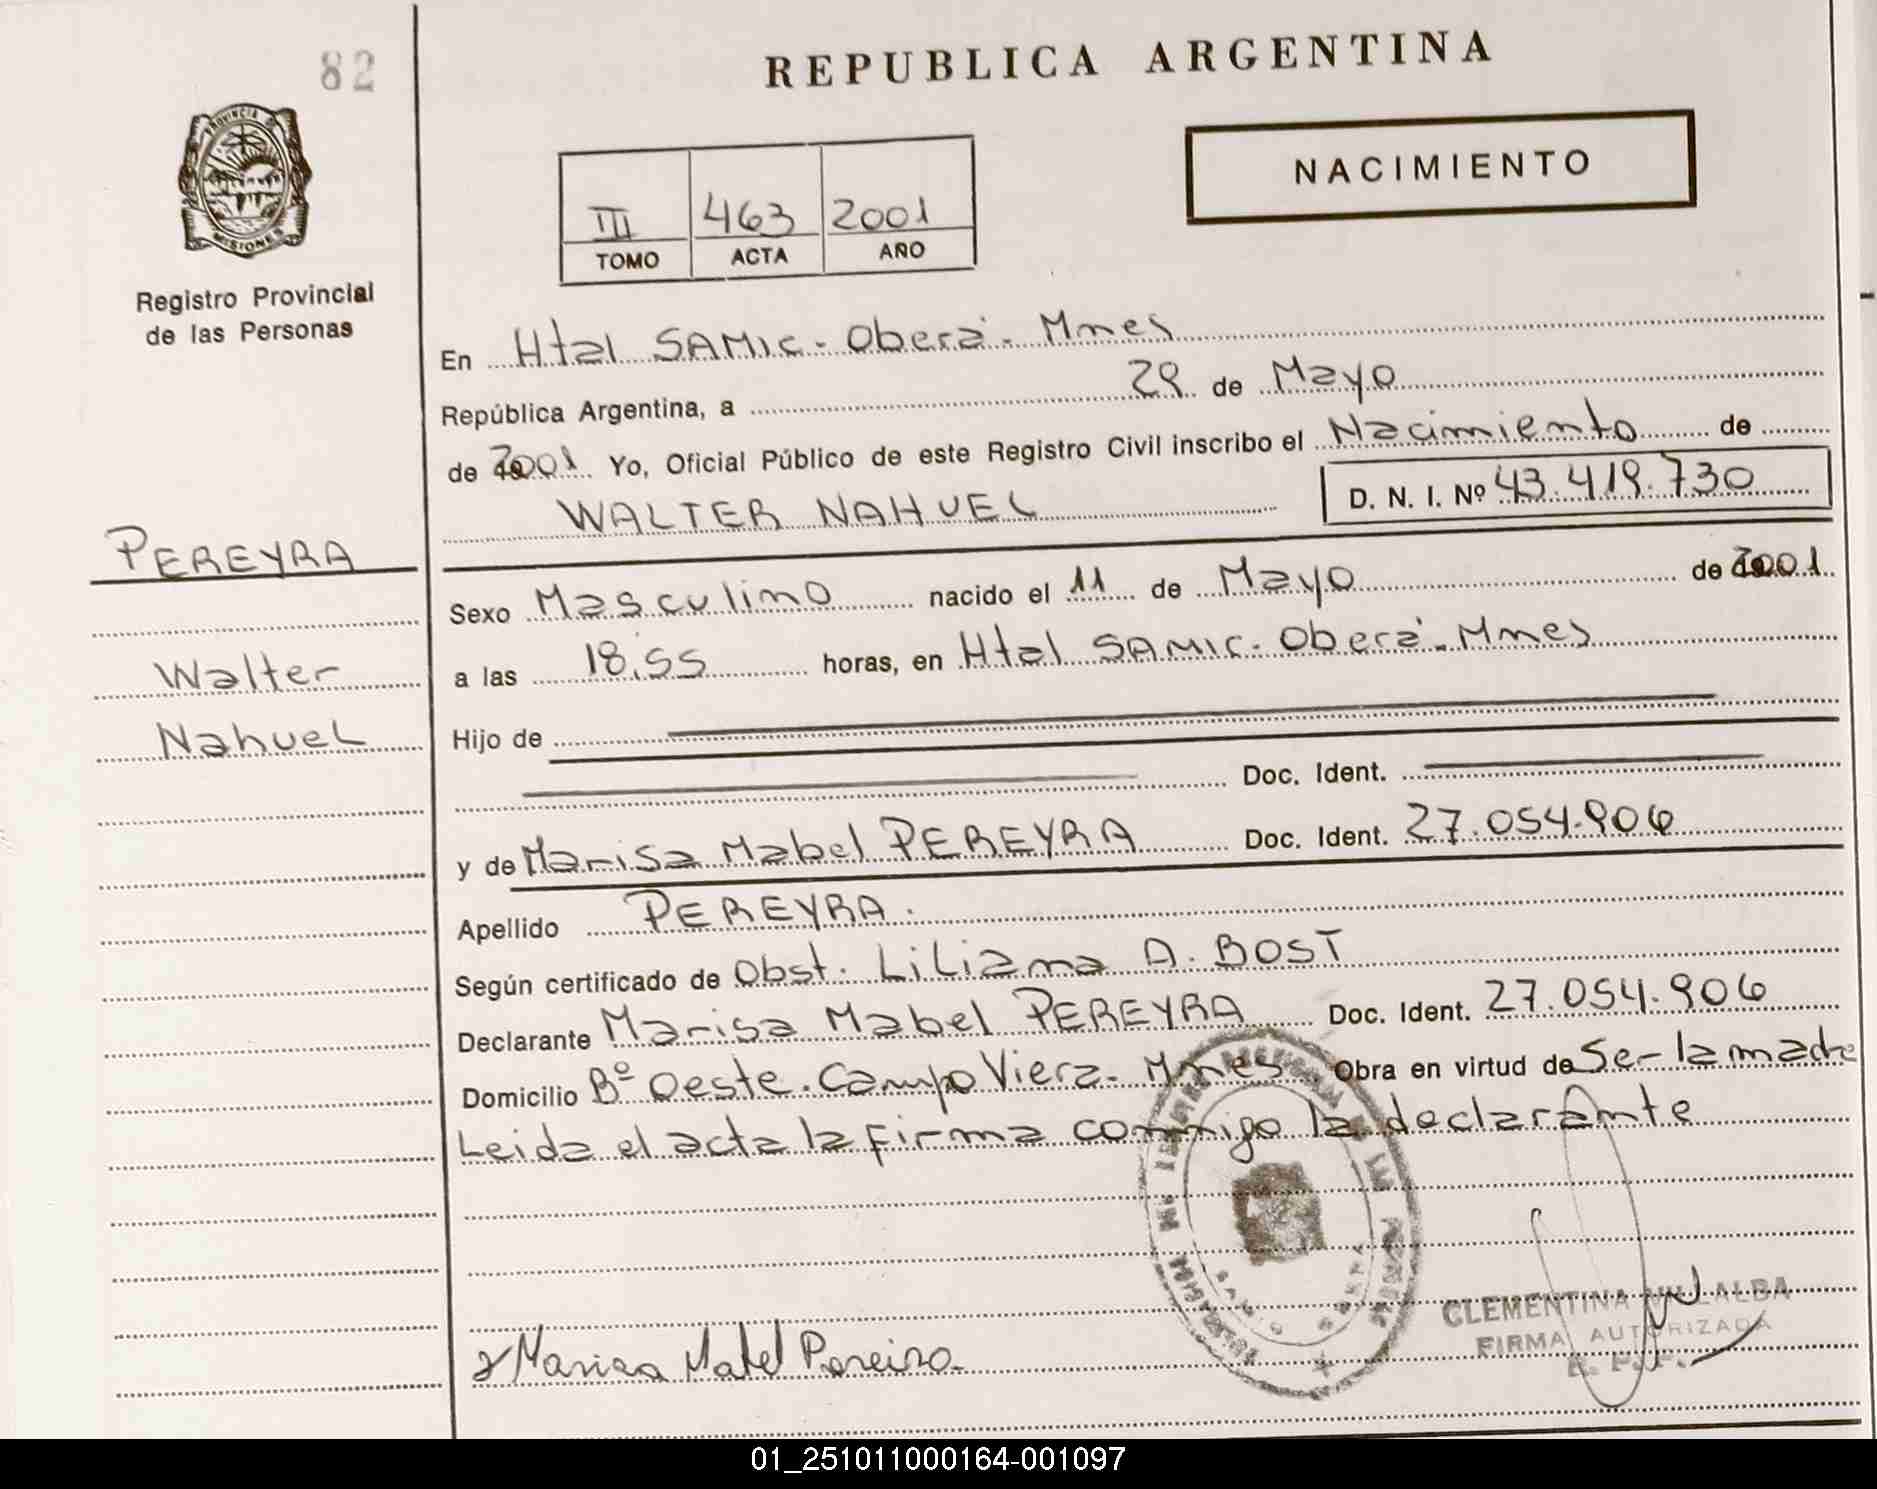 82
REPUBLICA ARGENTINA
PROVINCIA DE
MISIONES
NACIMIENTO
III 463 2001
TOMO ACTA AÑO
Registro Provincial
de las Personas
En Htal SAMIC - Oberá - Mnes
República Argentina, a 29 de Mayo
de 2001 Yo, Oficial Público de este Registro Civil inscribo el Nacimiento de
WALTER NAHUEL D. N. I. Nº 43.419.730
PEREYRA
Sexo Masculino nacido el 11 de Mayo de 2001
Walter
a las 18,55 horas, en Htal SAMIC - Oberá - Mnes
Nahuel
Hijo de
Doc. Ident.
y de Marisa Mabel PEREYRA Doc. Ident. 27.054.906
Apellido PEREYRA.
Según certificado de Obst. Liliana A. BOST
Declarante Marisa Mabel PEREYRA Doc. Ident. 27.054.906
Domicilio Bº Oeste. Campo Viera - Mnes Obra en virtud de Ser la madre
Leida el acta la firma conmigo la declarante
CLEMENTINA VILLALBA
FIRMA AUTORIZADA
Marisa Mabel Pereira
01_251011000164-001097